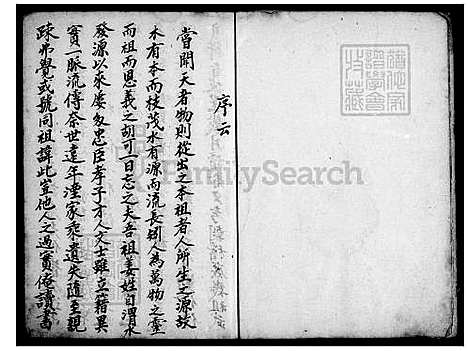 序云
嘗聞天者物則從出之本祖者人所生之源故
木有本而枝茂水有源而流長矧人為萬物之靈
而祖而恩義之胡可一日忘之夫吾祖姜姓自渭水
發源以來屢多忠臣孝子才人文士雖立籍異
實一脈流傳奈世遠年湮家乘遺失隨至親
疎弗覺或號同祖諱此豈他人之過實俺讀書
FamilySearch